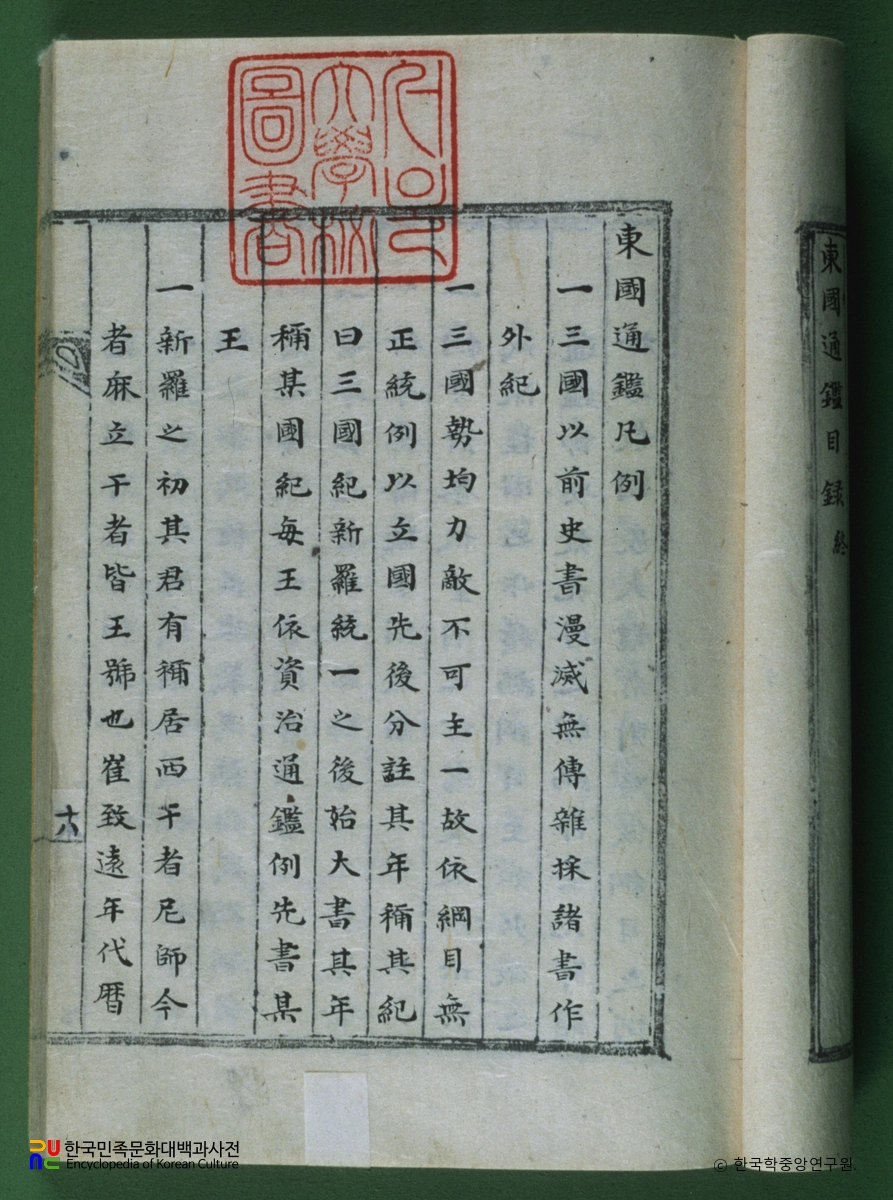 東國通鑑目録終
東國通鑑凡例
一三國以前史書漫滅無傳雜採諸書作
外紀
一三國勢均力敵不可主一故依綱目無
正統例以立國先後分註其年稱其紀
曰三國紀新羅統一之後始大書其年
稱某國紀每王依資治通鑑例先書某
王
一新羅之初其君有稱居西干者尼師今
者麻立干者皆王號也崔致遠年代曆
十六
圖書
한국민족문화대백과사전
Encyclopedia of Korean Culture
© 한국학중앙연구원.